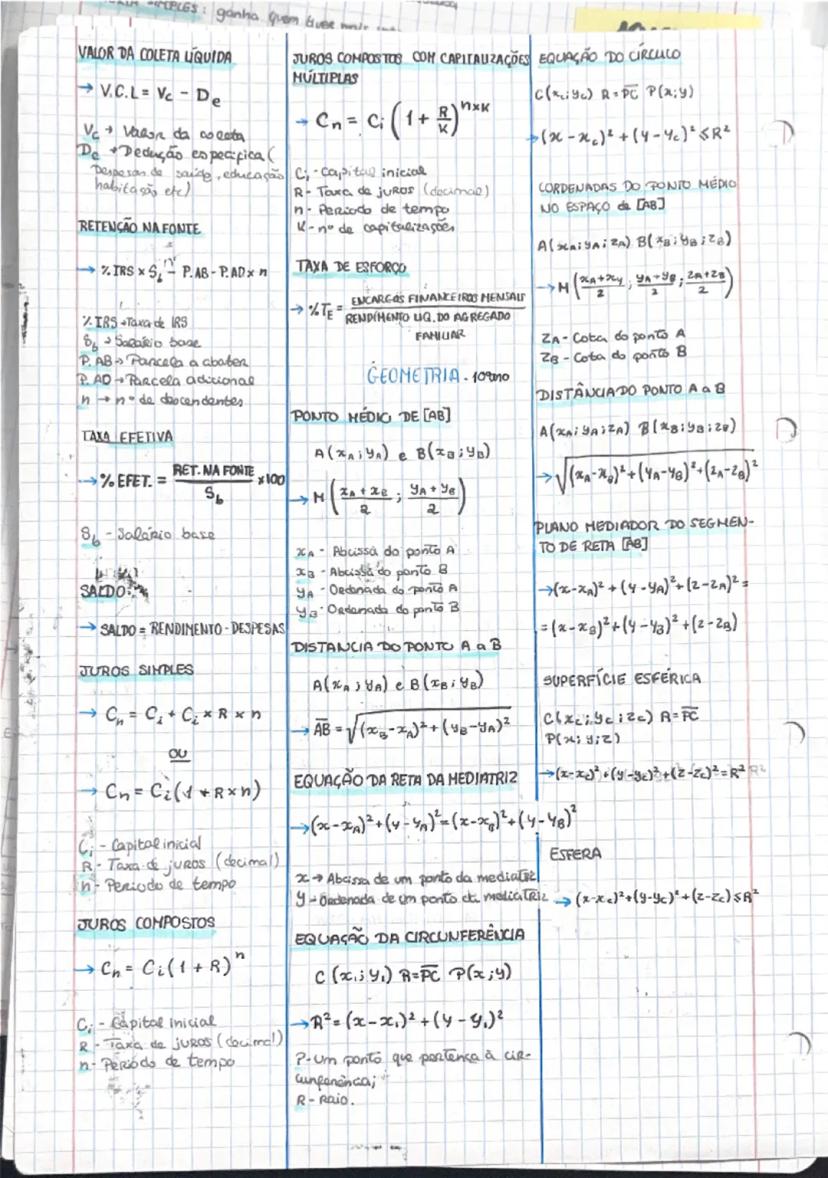 SIMPLES: ganha quem tiver mais
VALOR DA COLETA LÍQUIDA
→ V.C.L = Vc - De
Vc → Valor da coleta
De → Dedução específica (
Despesas de saúde, educação
habitação etc)
RETENÇÃO NA FONTE
→ % IRS x Sb - P.AB - P.AD x n
% IRS → Taxa de IRS
Sb → Salário base
P. AB → Parcela a abater
P. AD → Parcela adicional
n → nº de descendentes
TAXA EFETIVA
→ % EFET. = RET. NA FONTE / Sb x100
Sb - Salário base
SALDO:
→ SALDO = RENDIMENTO - DESPESAS
JUROS SIMPLES
→ Cn = Ci + Ci x R x n
OU
→ Cn = Ci(1 + R x n)
Ci - Capital inicial
R - Taxa de juros (decimal)
n - Período de tempo
JUROS COMPOSTOS
→ Cn = Ci(1 + R)^n
Ci - Capital inicial
R - Taxa de juros (decimal)
n - Período de tempo
JUROS COMPOSTOS COM CAPITALIZAÇÕES
MÚLTIPLAS
→ Cn = Ci (1 + R/K)^nxK
Ci - Capital inicial
R - Taxa de juros (decimal)
n - Período de tempo
K - nº de capitalizações
TAXA DE ESFORÇO
→ %TE = ENCARGOS FINANCEIROS MENSAIS / RENDIMENTO LIQ. DO AGREGADO
FAMILIAR
GEOMETRIA - 10ºano
PONTO MÉDIO DE [AB]
A(xA; yA) e B(xB; yB)
→ M (xA + xB / 2 ; yA + yB / 2)
xA - Abcissa do ponto A
xB - Abcissa do ponto B
yA - Ordenada do ponto A
yB - Ordenada do ponto B
DISTANCIA DO PONTO A a B
A(xA; yA) e B(xB; yB)
→ AB = √(xB - xA)² + (yB - yA)²
EQUAÇÃO DA RETA DA MEDIATRIZ
→ (x - xA)² + (y - yA)² = (x - xB)² + (y - yB)²
x → Abcissa de um ponto da mediatriz
y → Ordenada de um ponto da mediatriz
EQUAÇÃO DA CIRCUNFERÊNCIA
C (x1; y1) R = PC P(x; y)
→ R² = (x - x1)² + (y - y1)²
P - Um ponto que pertença à cir-
cunferência;
R - Raio.
EQUAÇÃO DO CÍRCULO
C(xc; yc) R = PC P(x; y)
→ (x - xc)² + (y - yc)² ≤ R²
CORDENADAS DO PONTO MÉDIO
NO ESPAÇO de [AB]
A(xA; yA; zA) B(xB; yB; zB)
→ M (xA + xy / 2 ; yA + yB / 2 ; zA + zB / 2)
ZA - Cota do ponto A
ZB - Cota do ponto B
DISTÂNCIA DO PONTO A a B
A(xA; yA; zA) B(xB; yB; zB)
→ √(xA - xB)² + (yA - yB)² + (zA - zB)²
PLANO MEDIADOR DO SEGMEN-
TO DE RETA [AB]
→ (x - xA)² + (y - yA)² + (z - zA)² =
= (x - xB)² + (y - yB)² + (z - zB)
SUPERFÍCIE ESFÉRICA
C(xc; yc; zc) R = PC
P(x; y; z)
→ (x - xc)² + (y - yc)² + (z - zc)² = R²
ESFERA
→ (x - xc)² + (y - yc)² + (z - zc) ≤ R²